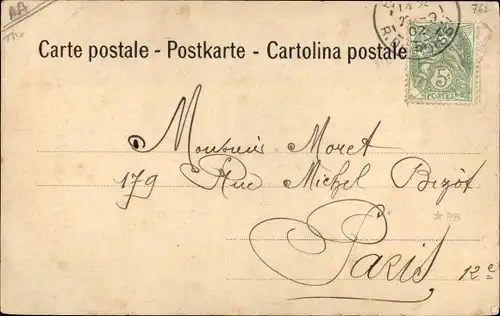 AA
762
Carte postale - Postkarte - Cartolina postale
02
5c
POSTES
Monsieur Moret
179 Rue Michel Bizot
PB
Paris 12e